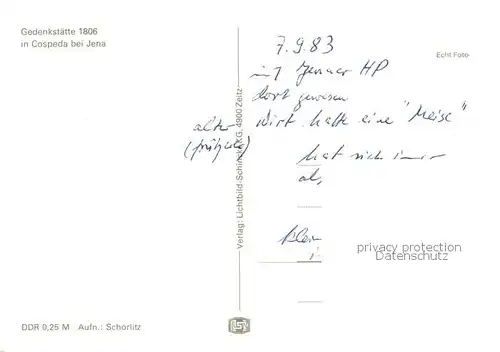 Gedenkstätte 1806
in Cospeda bei Jena
7.9.83
Echt Foto
mit Jenaer HP
dort gewesen
alter
Wirt hatte eine "Meise"
hat sich immer
als
privacy protection
Datenschutz
Verlag: Lichtbild-Schincke KG, 4900 Zeitz
DDR 0,25 M Aufn.: Schorlitz